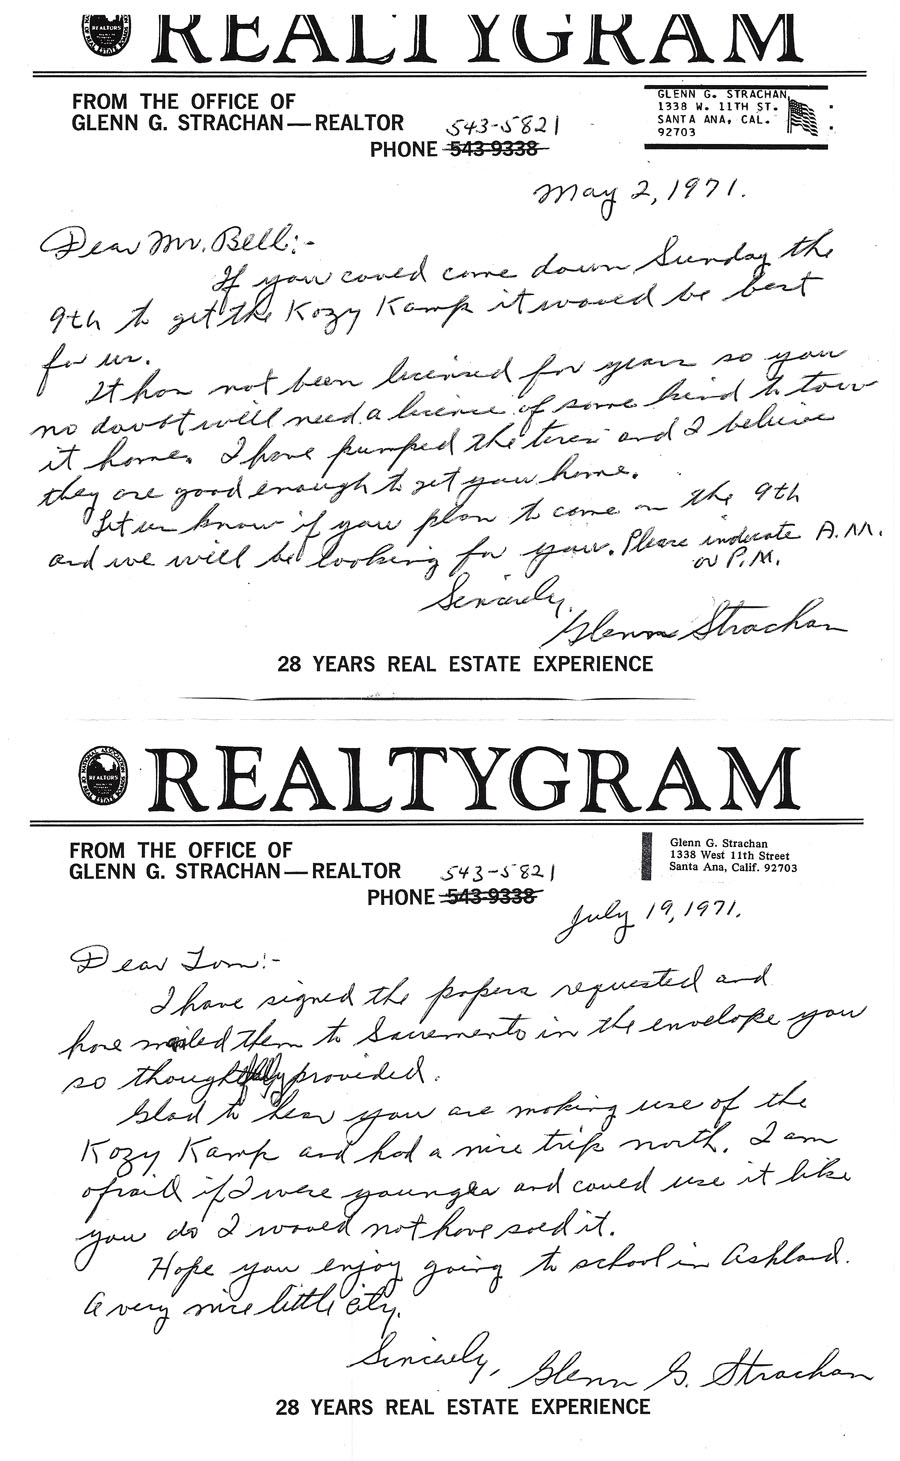 REALTORS
REALTYGRAM
FROM THE OFFICE OF
GLENN G. STRACHAN—REALTOR
543-5821
PHONE 543-9338
GLENN G. STRACHAN
1338 W. 11TH ST.
SANTA ANA, CAL.
92703
May 2, 1971.
Dear Mr. Bell:-
If you could come down Sunday the
9th to get the Kozy Kamp it would be best
for us.
It has not been licensed for years so you
no doubt will need a license of some kind to tow
it home. I have pumped the tires and I believe
they are good enough to get you home.
Let us know if you plan to come on the 9th
and we will be looking for you. Please indicate A.M.
or P.M.
Sincerely,
Glenn Strachan
28 YEARS REAL ESTATE EXPERIENCE
REALTORS
REALTYGRAM
FROM THE OFFICE OF
GLENN G. STRACHAN—REALTOR
543-5821
PHONE 543-9338
Glenn G. Strachan
1338 West 11th Street
Santa Ana, Calif. 92703
July 19, 1971.
Dear Tom:-
I have signed the papers requested and
have mailed them to Sacramento in the envelope you
so thoughtfully provided.
Glad to hear you are making use of the
Kozy Kamp and had a nice trip north. I am
afraid if I were younger and could use it like
you do I would not have sold it.
Hope you enjoy going to school in Ashland.
A very nice little city.
Sincerely,
Glenn G. Strachan
28 YEARS REAL ESTATE EXPERIENCE